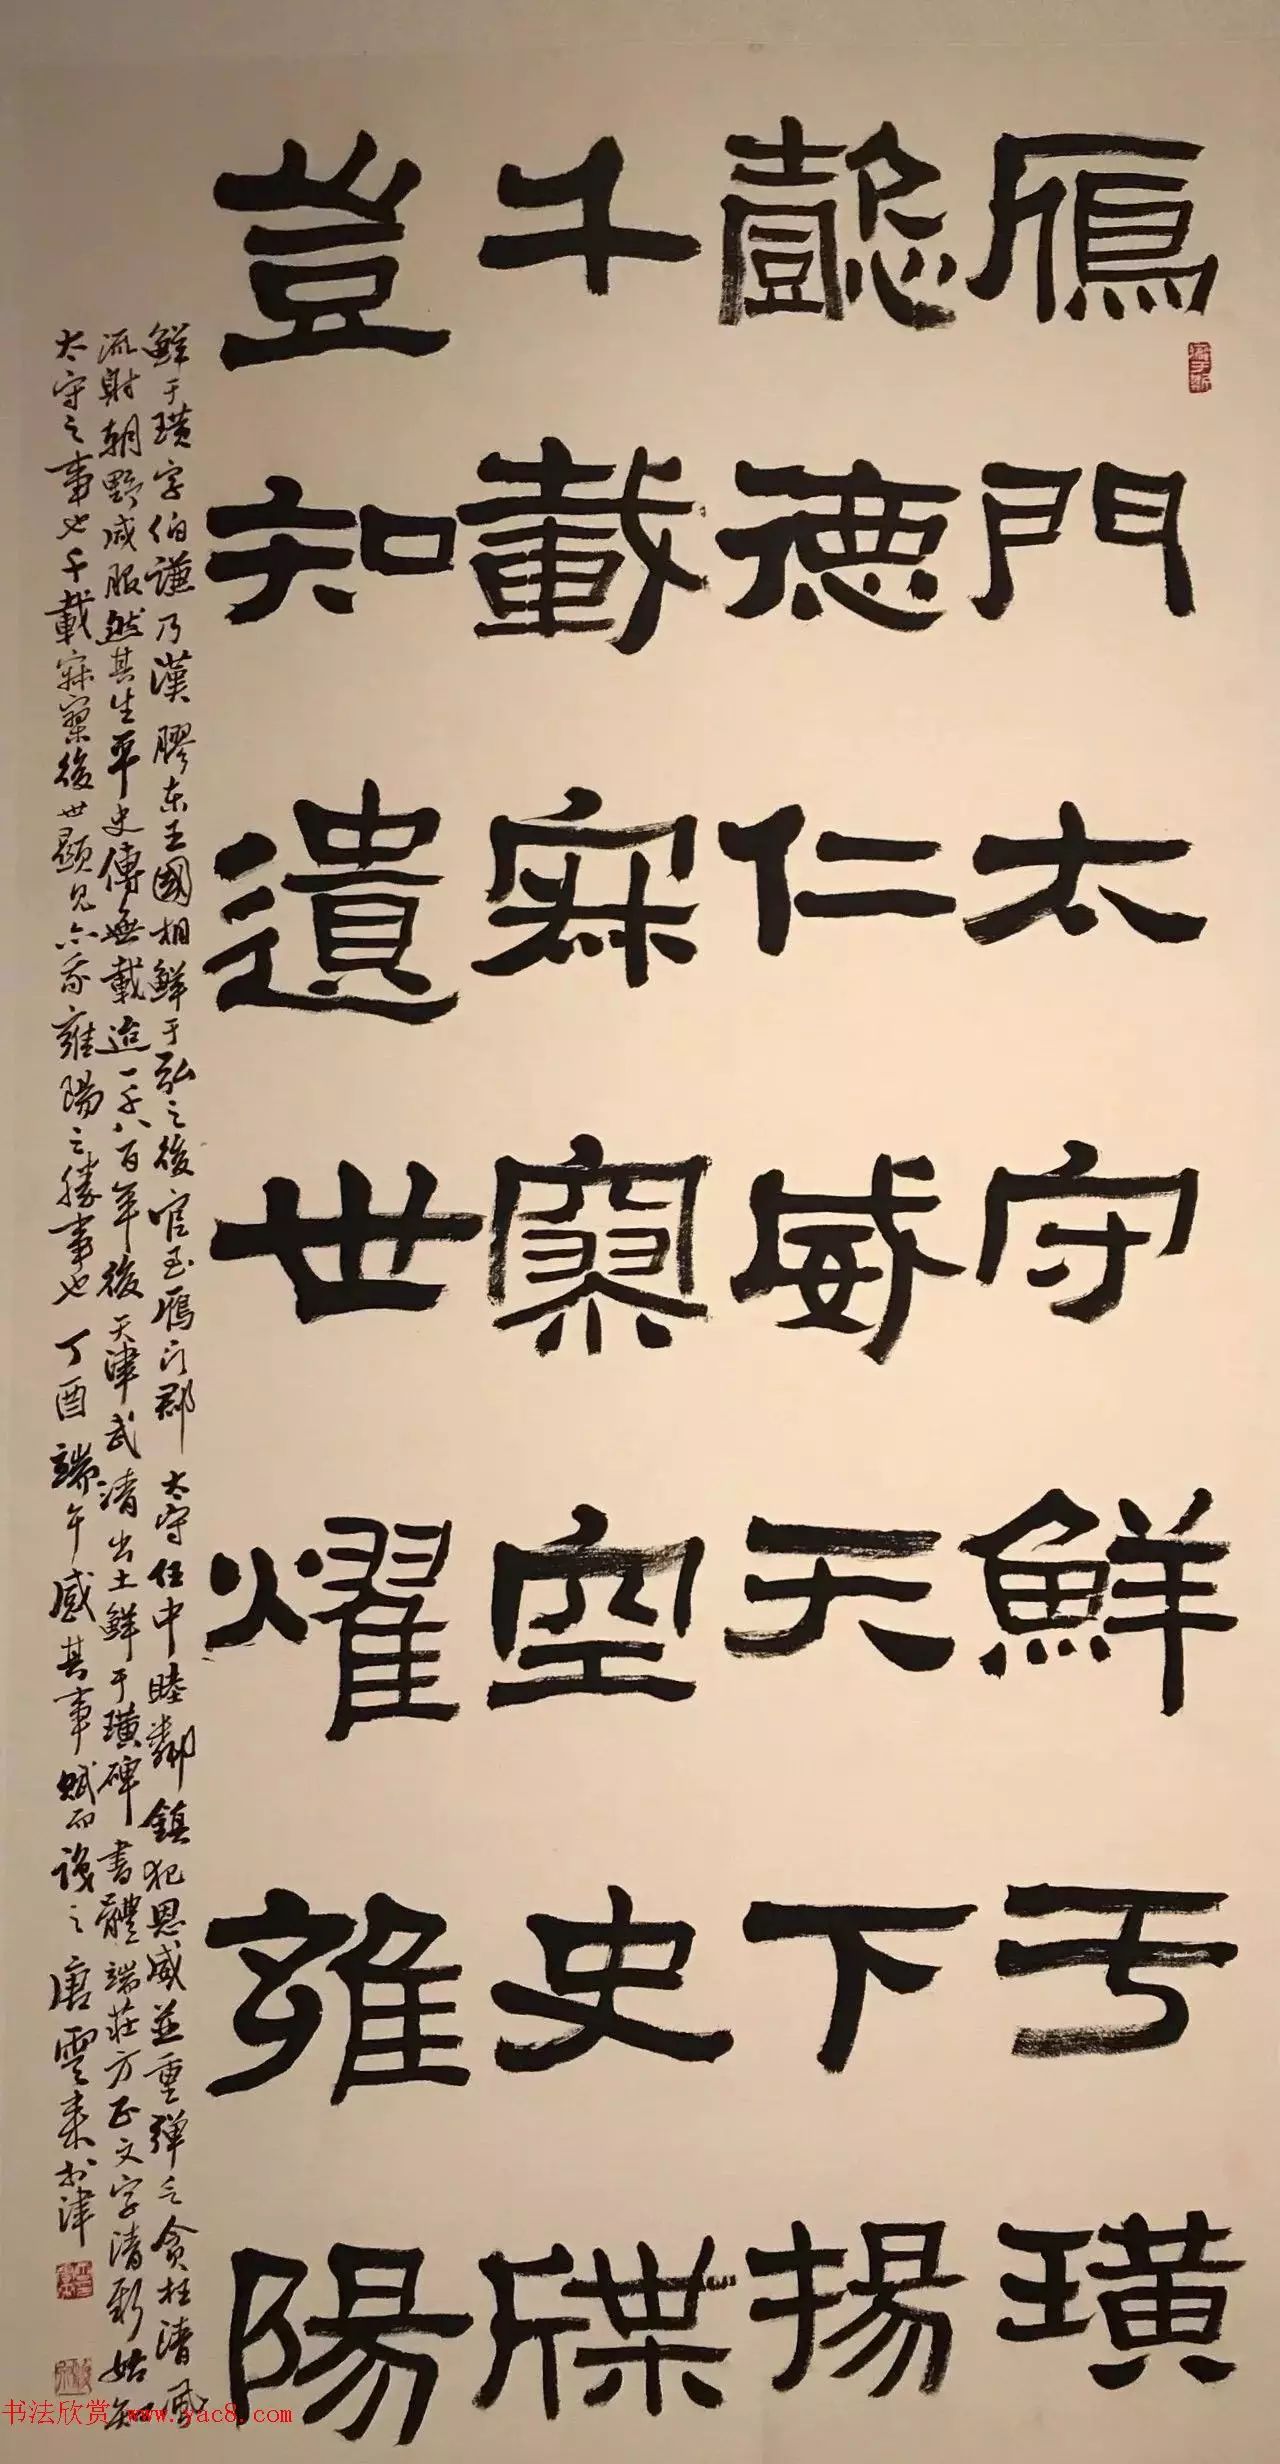 雁門太守鮮于璜
懿德仁威天下揚
千載寂寞空史牒
豈知遺世耀雍陽
鮮于璜字伯謙乃漢膠東王國相鮮于弘之後官至雁门郡太守任中睦鄰鎮犯恩威並重弹亡貪枉清風
流射朝野咸服然其生平史傳無載迨一千八百年後天津武清出土鮮于璜碑書體端莊方正文字清新始知
太守之事也千載寂寞後世顯見亦我雍陽之勝事也丁酉端午感其事賦而識之唐雲来於津
书法欣赏 www.yac8.com